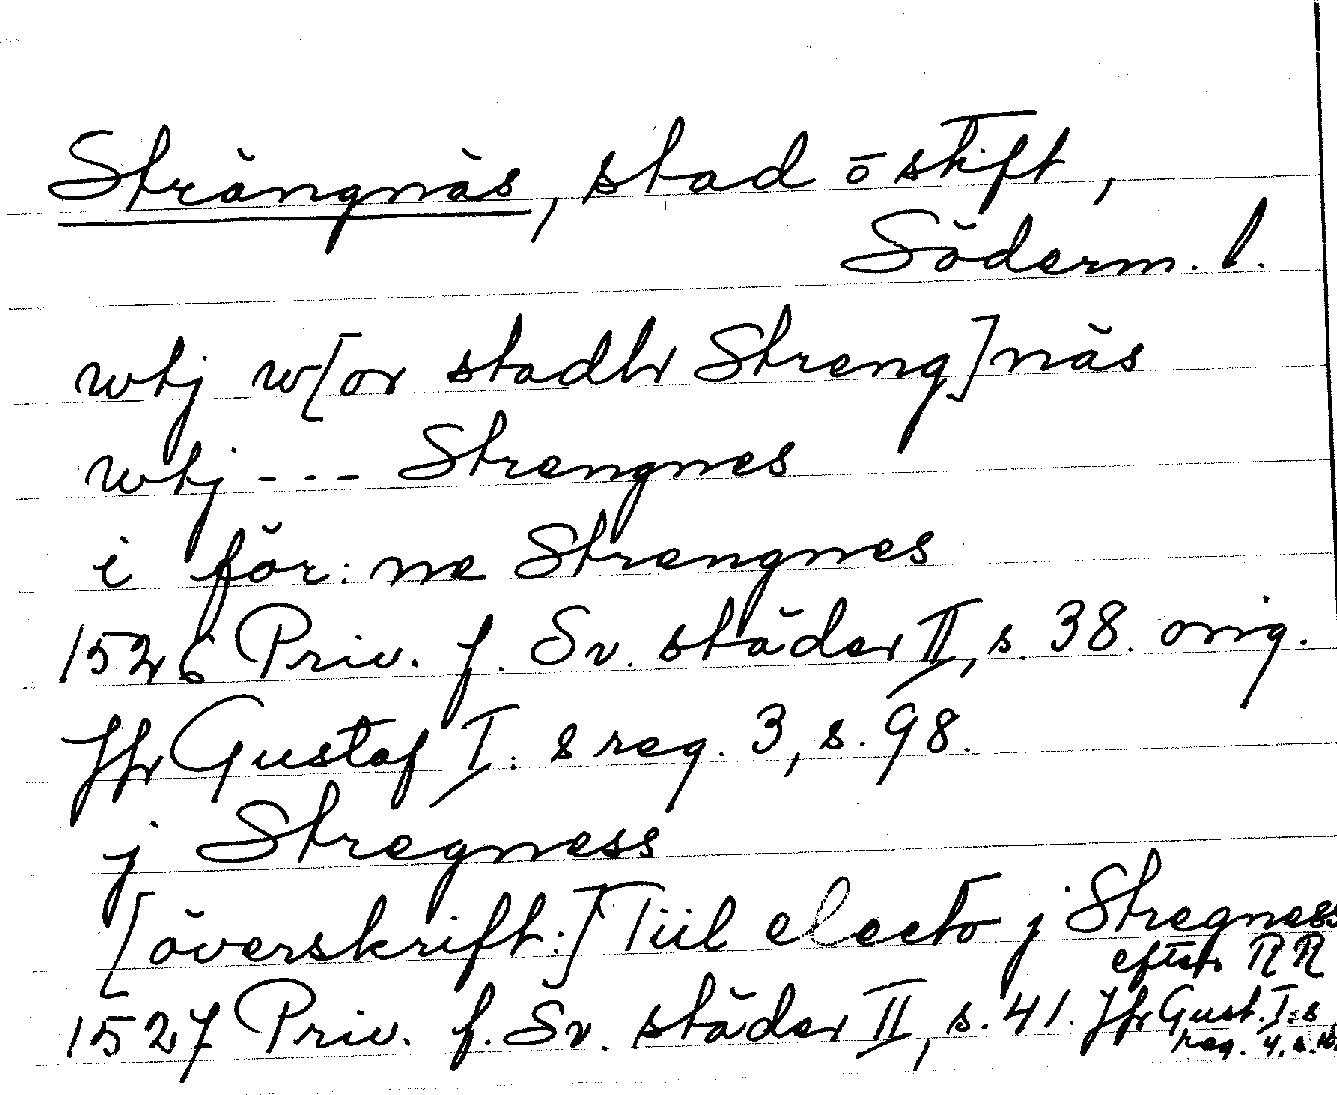 Strängnäs, stad o stift,
Söderm. l.
wtj w[or stadh Streng]näs
wtj - - - Strengnes
i för: ne Strengnes
1526 Priv. f. Sv. städer II, s. 38. orig.
Jfr Gustaf I. s reg. 3, s. 98.
j Stregness
[överskrift:] Tiil electo j Stregness
efter RR
1527 Priv. f. Sv. städer II, s. 41. Jfr Gust. I:s
reg. 4, s.